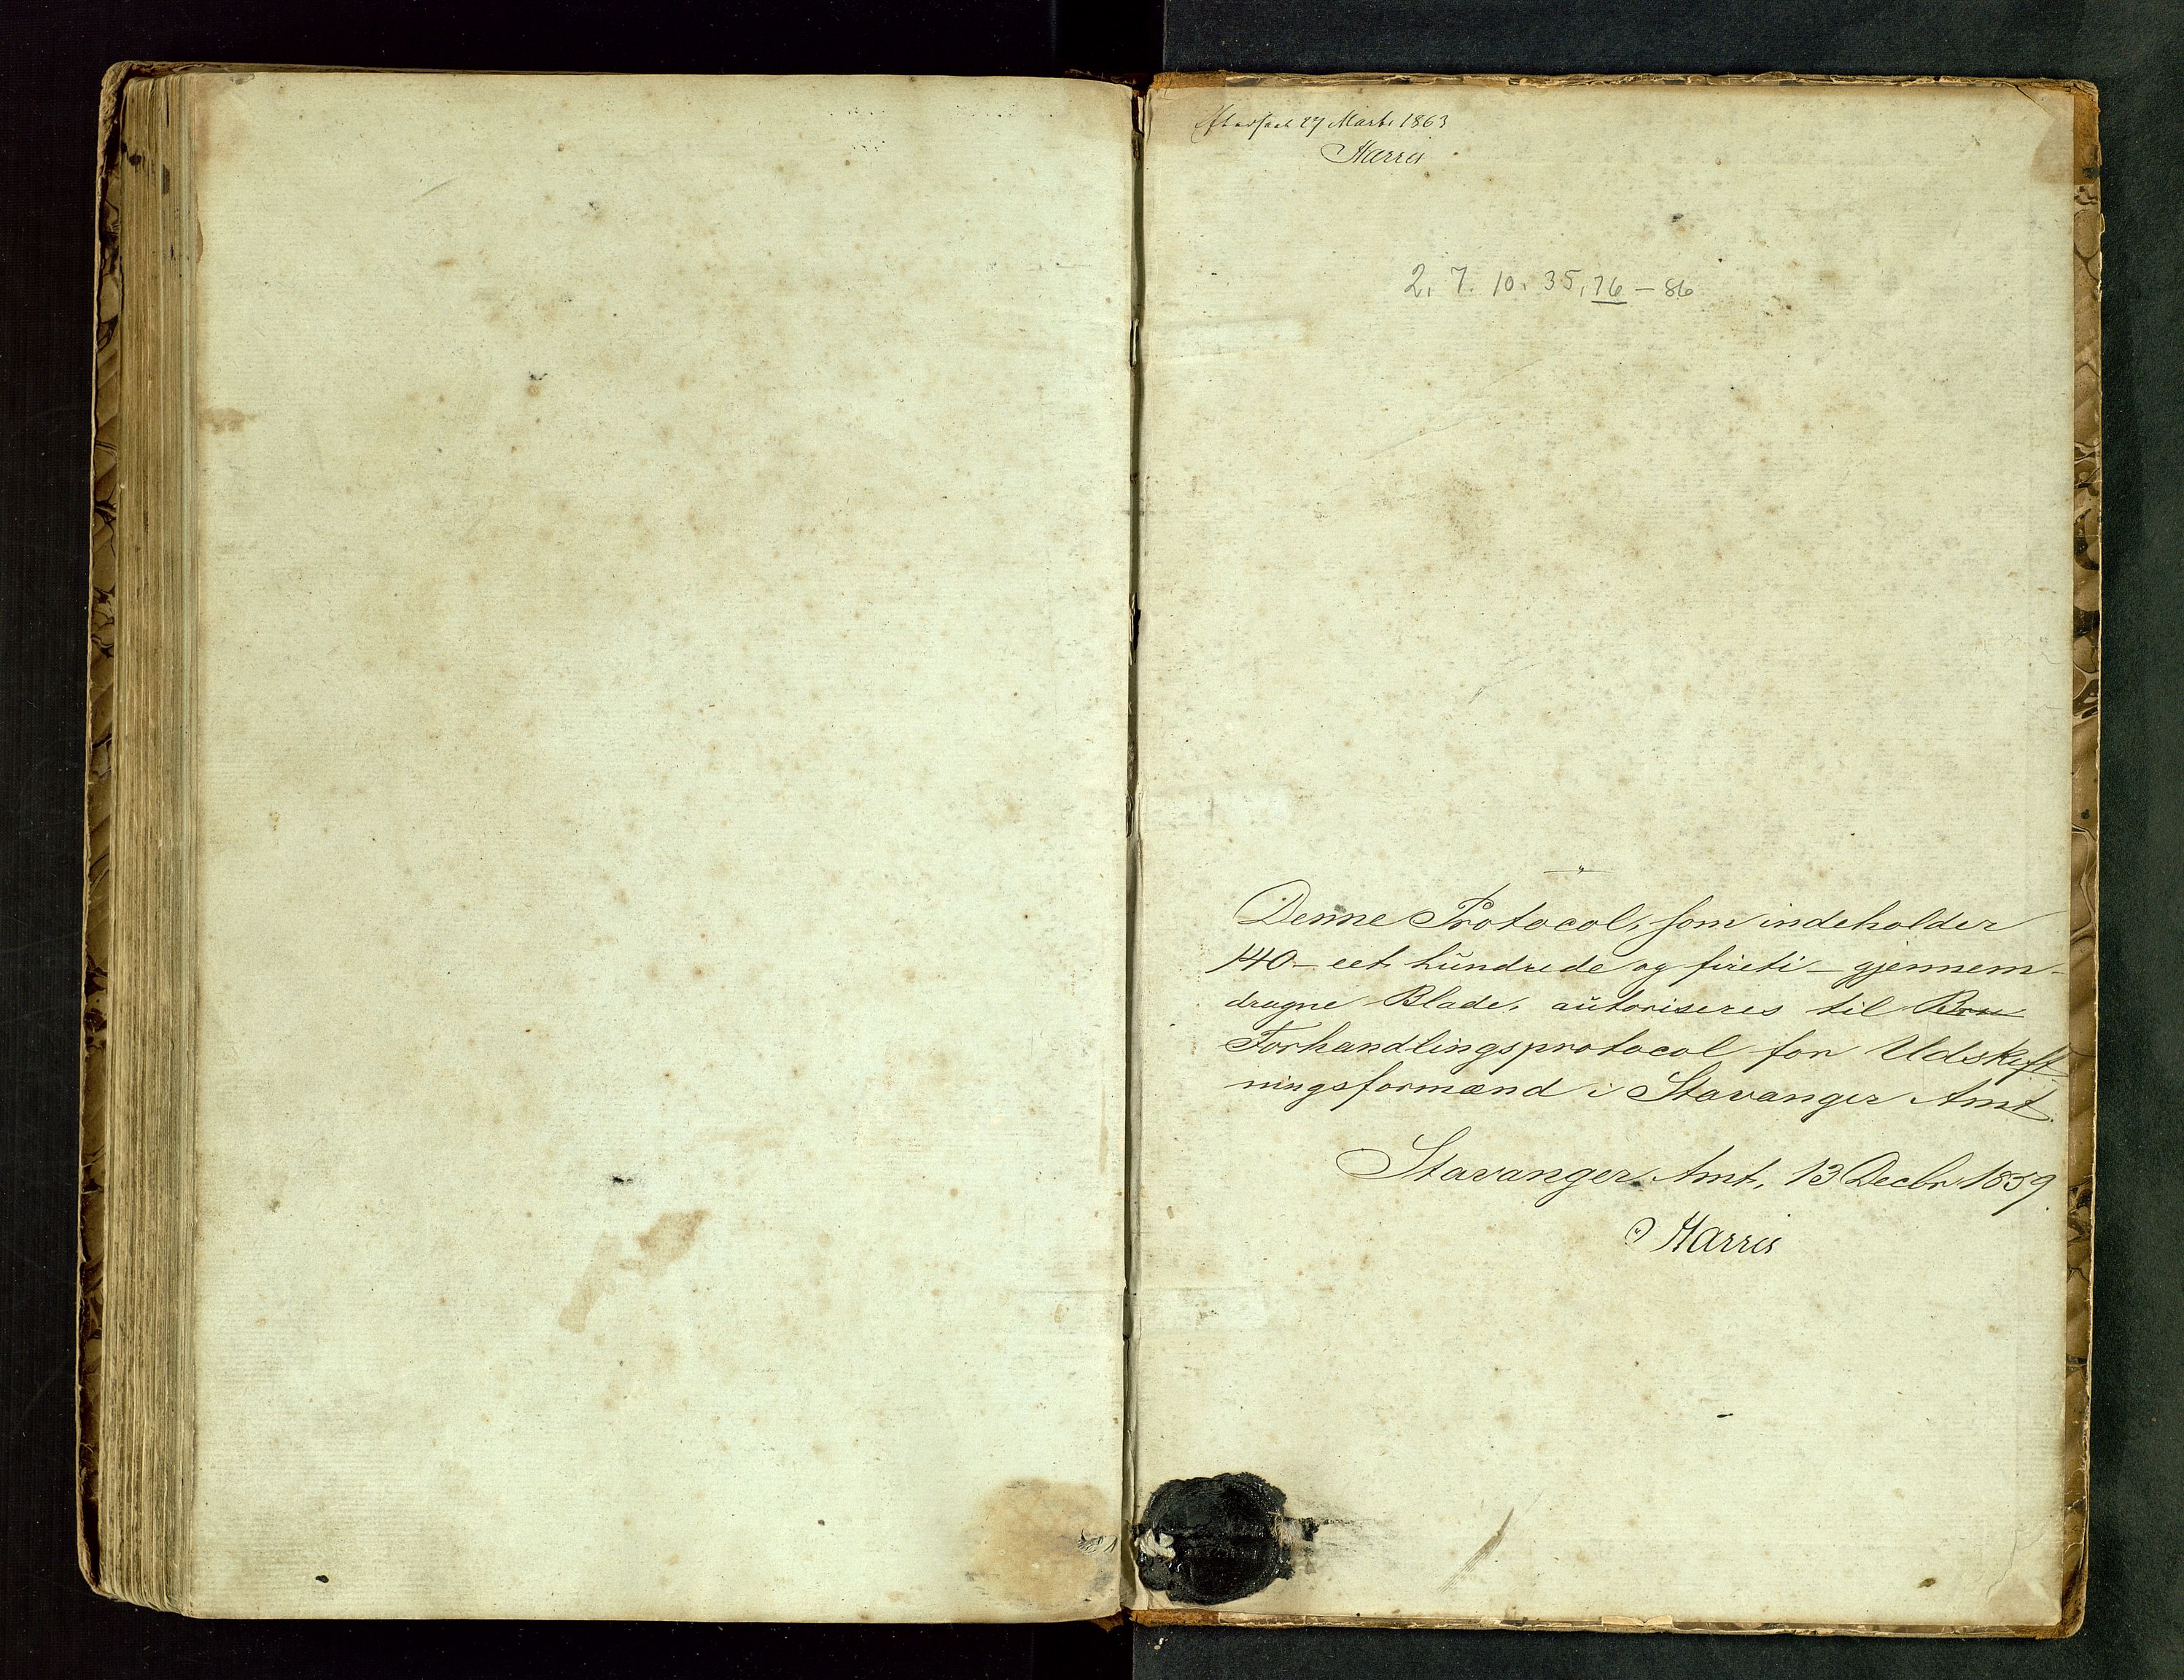 Efterseet 27 Marts 1863
Harris
2, 7. 10. 35, 76 - 86
Denne Protocol, som indeholder
140 - eet hundrede og fireti - gjennem-
dragne Blade, autoriseres til Bru
Forhandlingsprotocol for Udskift
ningsformænd i Stavanger Amt.
Stavanger Amt, 13 Decbr 1859.
Harris